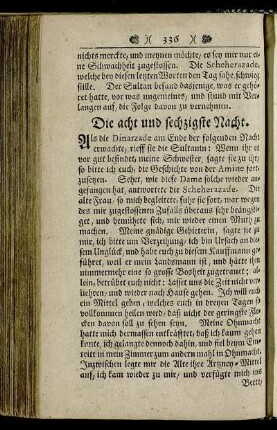 )( 336 )(
nichts merckte, und meynen möchte, es sey mir nur ei-
ne Schwachheit zugestossen. Die Scheherazade,
welche bey diesen letzten Worten den Tag sahe, schwieg
stille. Der Sultan befand dasjenige, was er gehö-
ret hatte, vor was ungemeines, und stund mit Ver-
langen auf, die Folge davon zu vernehmen.
Die acht und sechzigste Nacht.
Als die Dinarzade am Ende der folgenden Nacht
erwachte, rieff sie die Sultanin: Wenn ihr es
vor gut befindet, meine Schwester, sagte sie zu ihr,
so bitte ich euch, die Geschichte von der Amine fort-
zusetzen. Sehet, wie diese Dame solche wieder an-
gefangen hat, antwortete die Scheherazade. Die
alte Frau, so mich begleitete, fuhr sie fort, war wegen
des mir zugestossenen Zufalls überaus sehr beängsti-
get, und bemühete sich, mir wieder einen Muth zu
machen. Meine gnädige Gebieterin, sagte sie zu
mir, ich bitte um Verzeihung, ich bin Ursach an die-
sem Unglück, und habe euch zu diesem Kauffmann ge-
führet, weil er mein Landsmann ist, und hätte ihn
nimmermehr eine so grosse Bosheit zugetrauet; al-
lein, betrübet euch nicht: lasset uns die Zeit nicht ver-
liehren, und wieder nach Hause gehen. Ich will euch
ein Mittel geben, welches euch in dreyen Tagen so
vollkommen heilen wird, daß nicht der geringste Fle-
cken davon soll zu sehen seyn. Meine Ohnmacht
hatte mich dermassen entkräftet, daß ich kaum gehen
konte, ich gelangte dennoch dahin, und fiel beym Ein-
tritt in mein Zimmer zum andern mahl in Ohnmacht.
Inzwischen legte mir die Alte ihre Artzney-Mittel
auf, ich kam wieder zu mir, und verfügte mich ins
Bette,